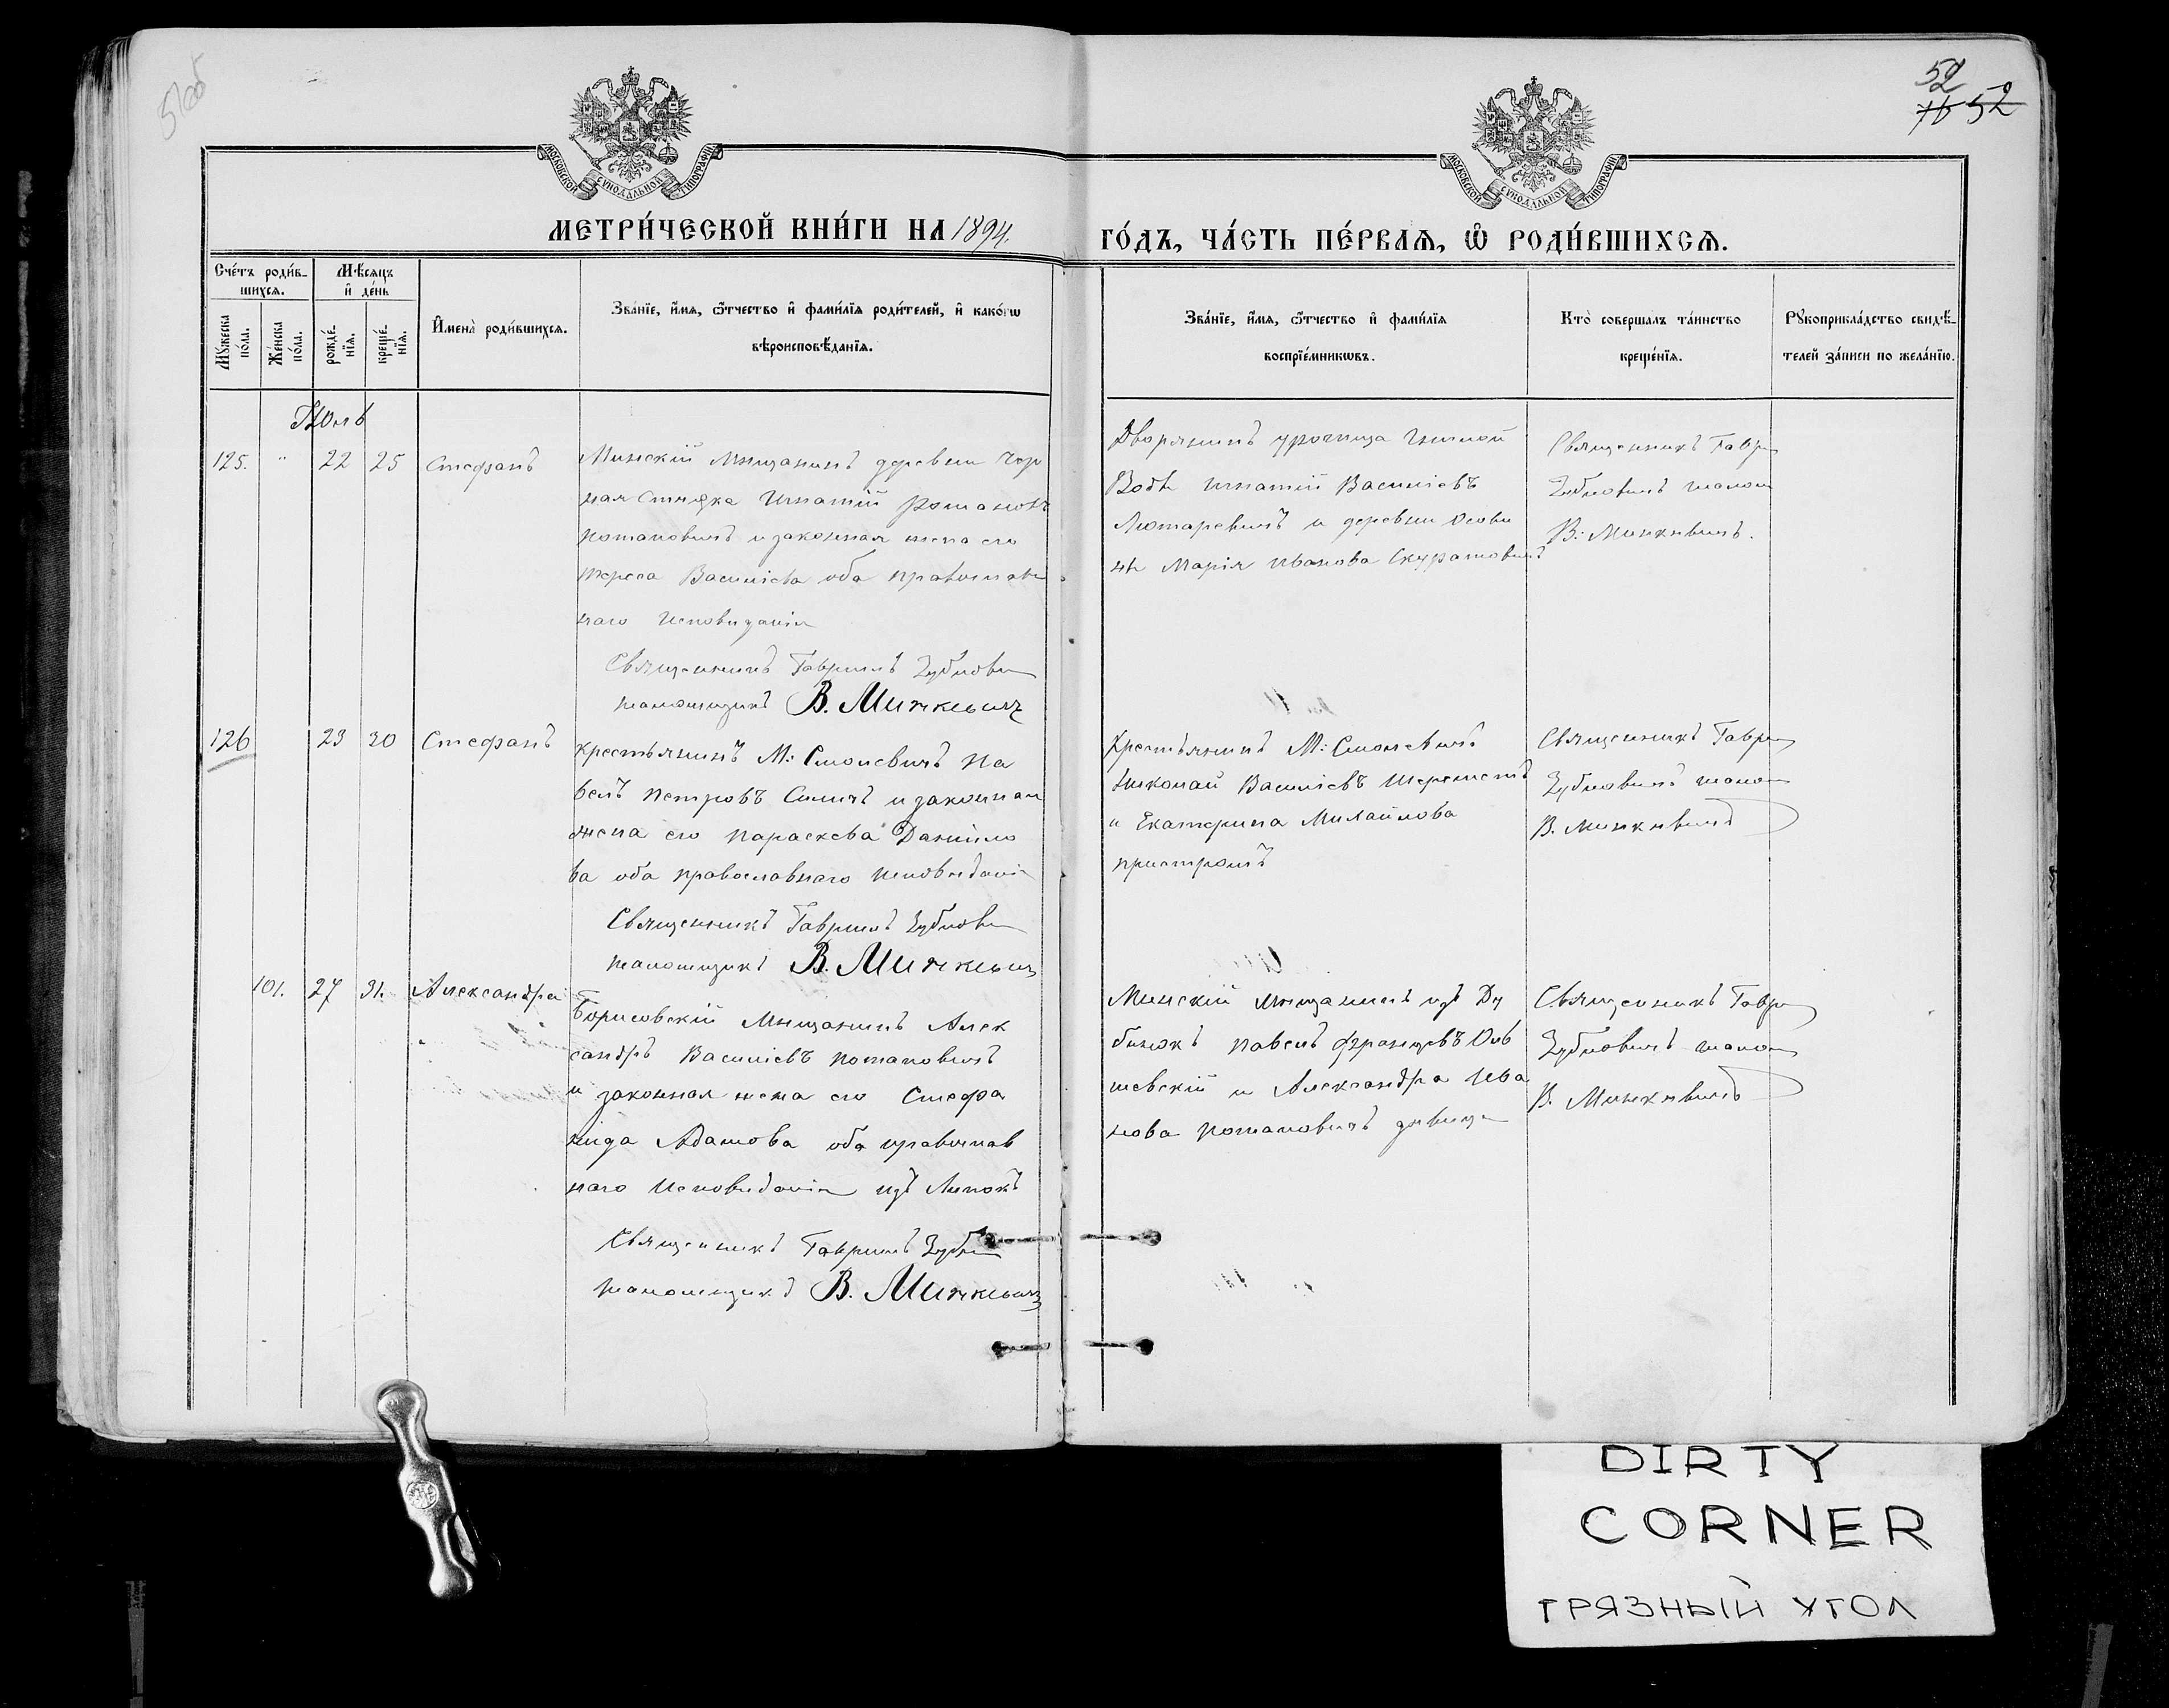 51об
52
76 52
МОСКОВСКОЙ СУНОДАЛЬНОЙ ТИПОГРАФІИ
МОСКОВСКОЙ СУНОДАЛЬНОЙ ТИПОГРАФІИ
МЕТРИ́ЧЕСКОЙ КНИ́ГИ НА 1894.
ГО́ДЪ, ЧА́СТЬ ПЕ́РВАѦ, Ѡ҆ РОДИ́ВШИХСѦ.
Сче́тъ роди́в-
шихсѧ.
Мꙋ́жеска по́ла.
Же́нска по́ла.
Мѣ́сѧцъ
и҆ де́нь
рожде́-
нїѧ.
креще́-
нїѧ.
И҆мена̀ роди́вшихсѧ.
Зва́нїе, и҆́мѧ, ѻ҆́тчество и҆ фами́лїѧ роди́телей, и҆ како́гѡ
вѣроисповѣ́данїѧ.
Зва́нїе, и҆́мѧ, ѻ҆́тчество и҆ фами́лїѧ
воспрїе́мникѡвъ.
Кто̀ совершалъ та́инство
креще́нїѧ.
Рꙋкоприкла́дство свидѣ́-
телей за́писи по жела́нїю.
Июль
125. " 22 25 Стефанъ
Минскій мещанинъ деревни Чер
ная Игнатій Романовъ
Потаповичъ и законная жена его
Тереса Василіева оба православ
наго Исповиданія
Священникъ Гавриилъ Зубкови
Псаломщикъ В. Мичкевичъ
Дворянинъ урочища Гнилой
Воды Игнатій Василіевъ
и деревни Осови
ны Марія Иванова Скуратовичъ
Священникъ Гаври
Зубковичъ псалом
В. Мичкевичъ.
126 23 30 Стефанъ
Крестьянинъ М: Смолевичъ Па
велъ Петровъ и законная
жена его Параскева Даниило
ва оба православнаго Исповедани
Священникъ Гавриилъ Зубкови
Псаломщикъ В. Мичкевичъ
Крестьянинъ М: Смолевичъ
Николай Василіевъ Шереметъ
и Екатерина Михайлова
Священникъ Гаври
Зубковичъ псало
В. Мичкевичъ
101. 27 31. Александра
Борисовскій Мещанинъ Алек
сандръ Василіевъ Потаповичъ
и законная жена его Стефа
нида Адамова оба православ
наго Исповеданія изъ Липокъ
Священникъ Гавриилъ Зубк
Псаломщикъ В. Мичкевичъ
Минскій мещанинъ изъ Ду
бинокъ Павелъ Францовъ Оль
шевскій и Александра Ива
нова Потаповичъ девица
Священникъ Гаври
Зубковичъ псалом
В. Мичкевичъ
DIRTY
CORNER
ГРЯЗНЫЙ УГОЛ